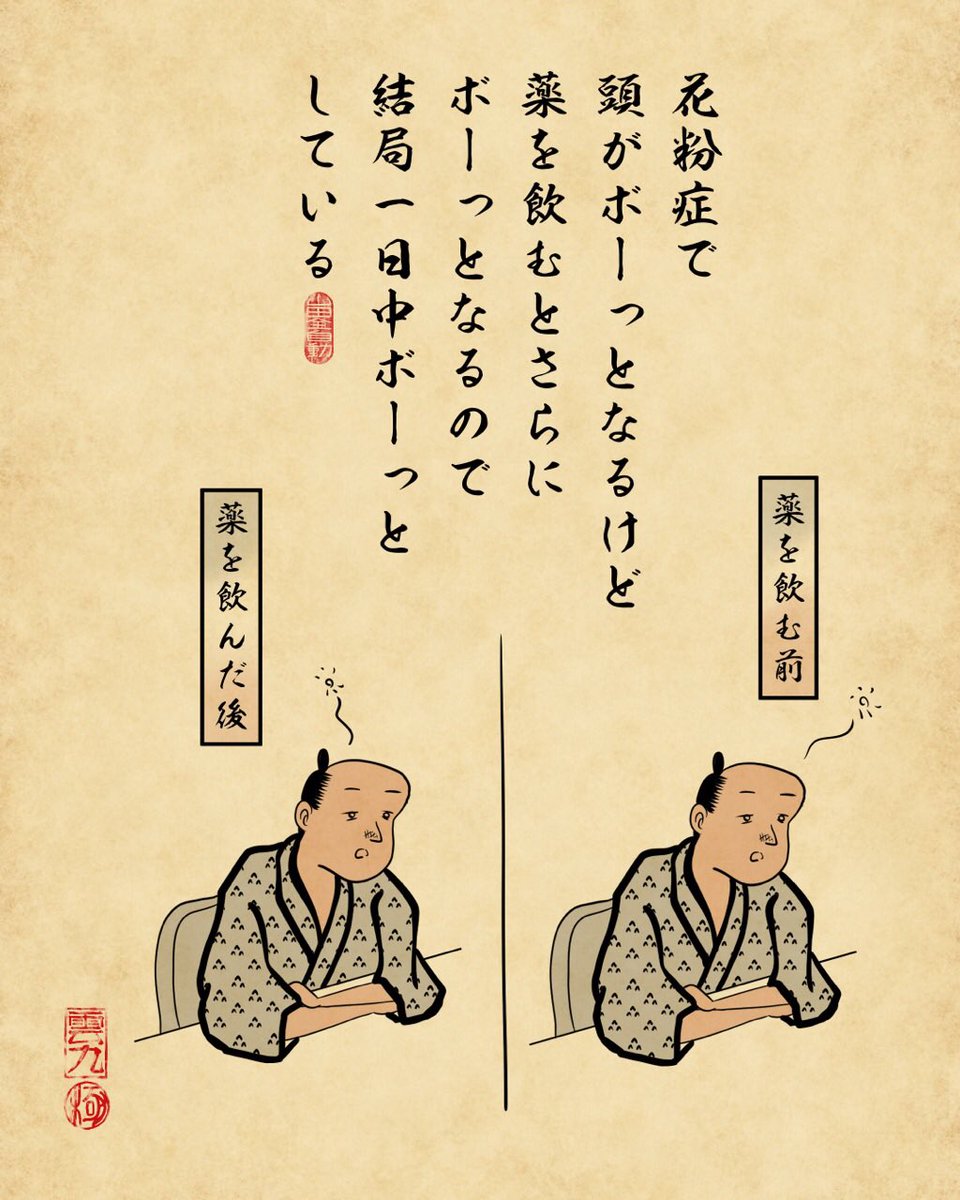 花粉症で
頭がボーっとなるけど
薬を飲むとさらに
ボーっとなるので
結局一日中ボーっと
している
薬を飲む前
薬を飲んだ後